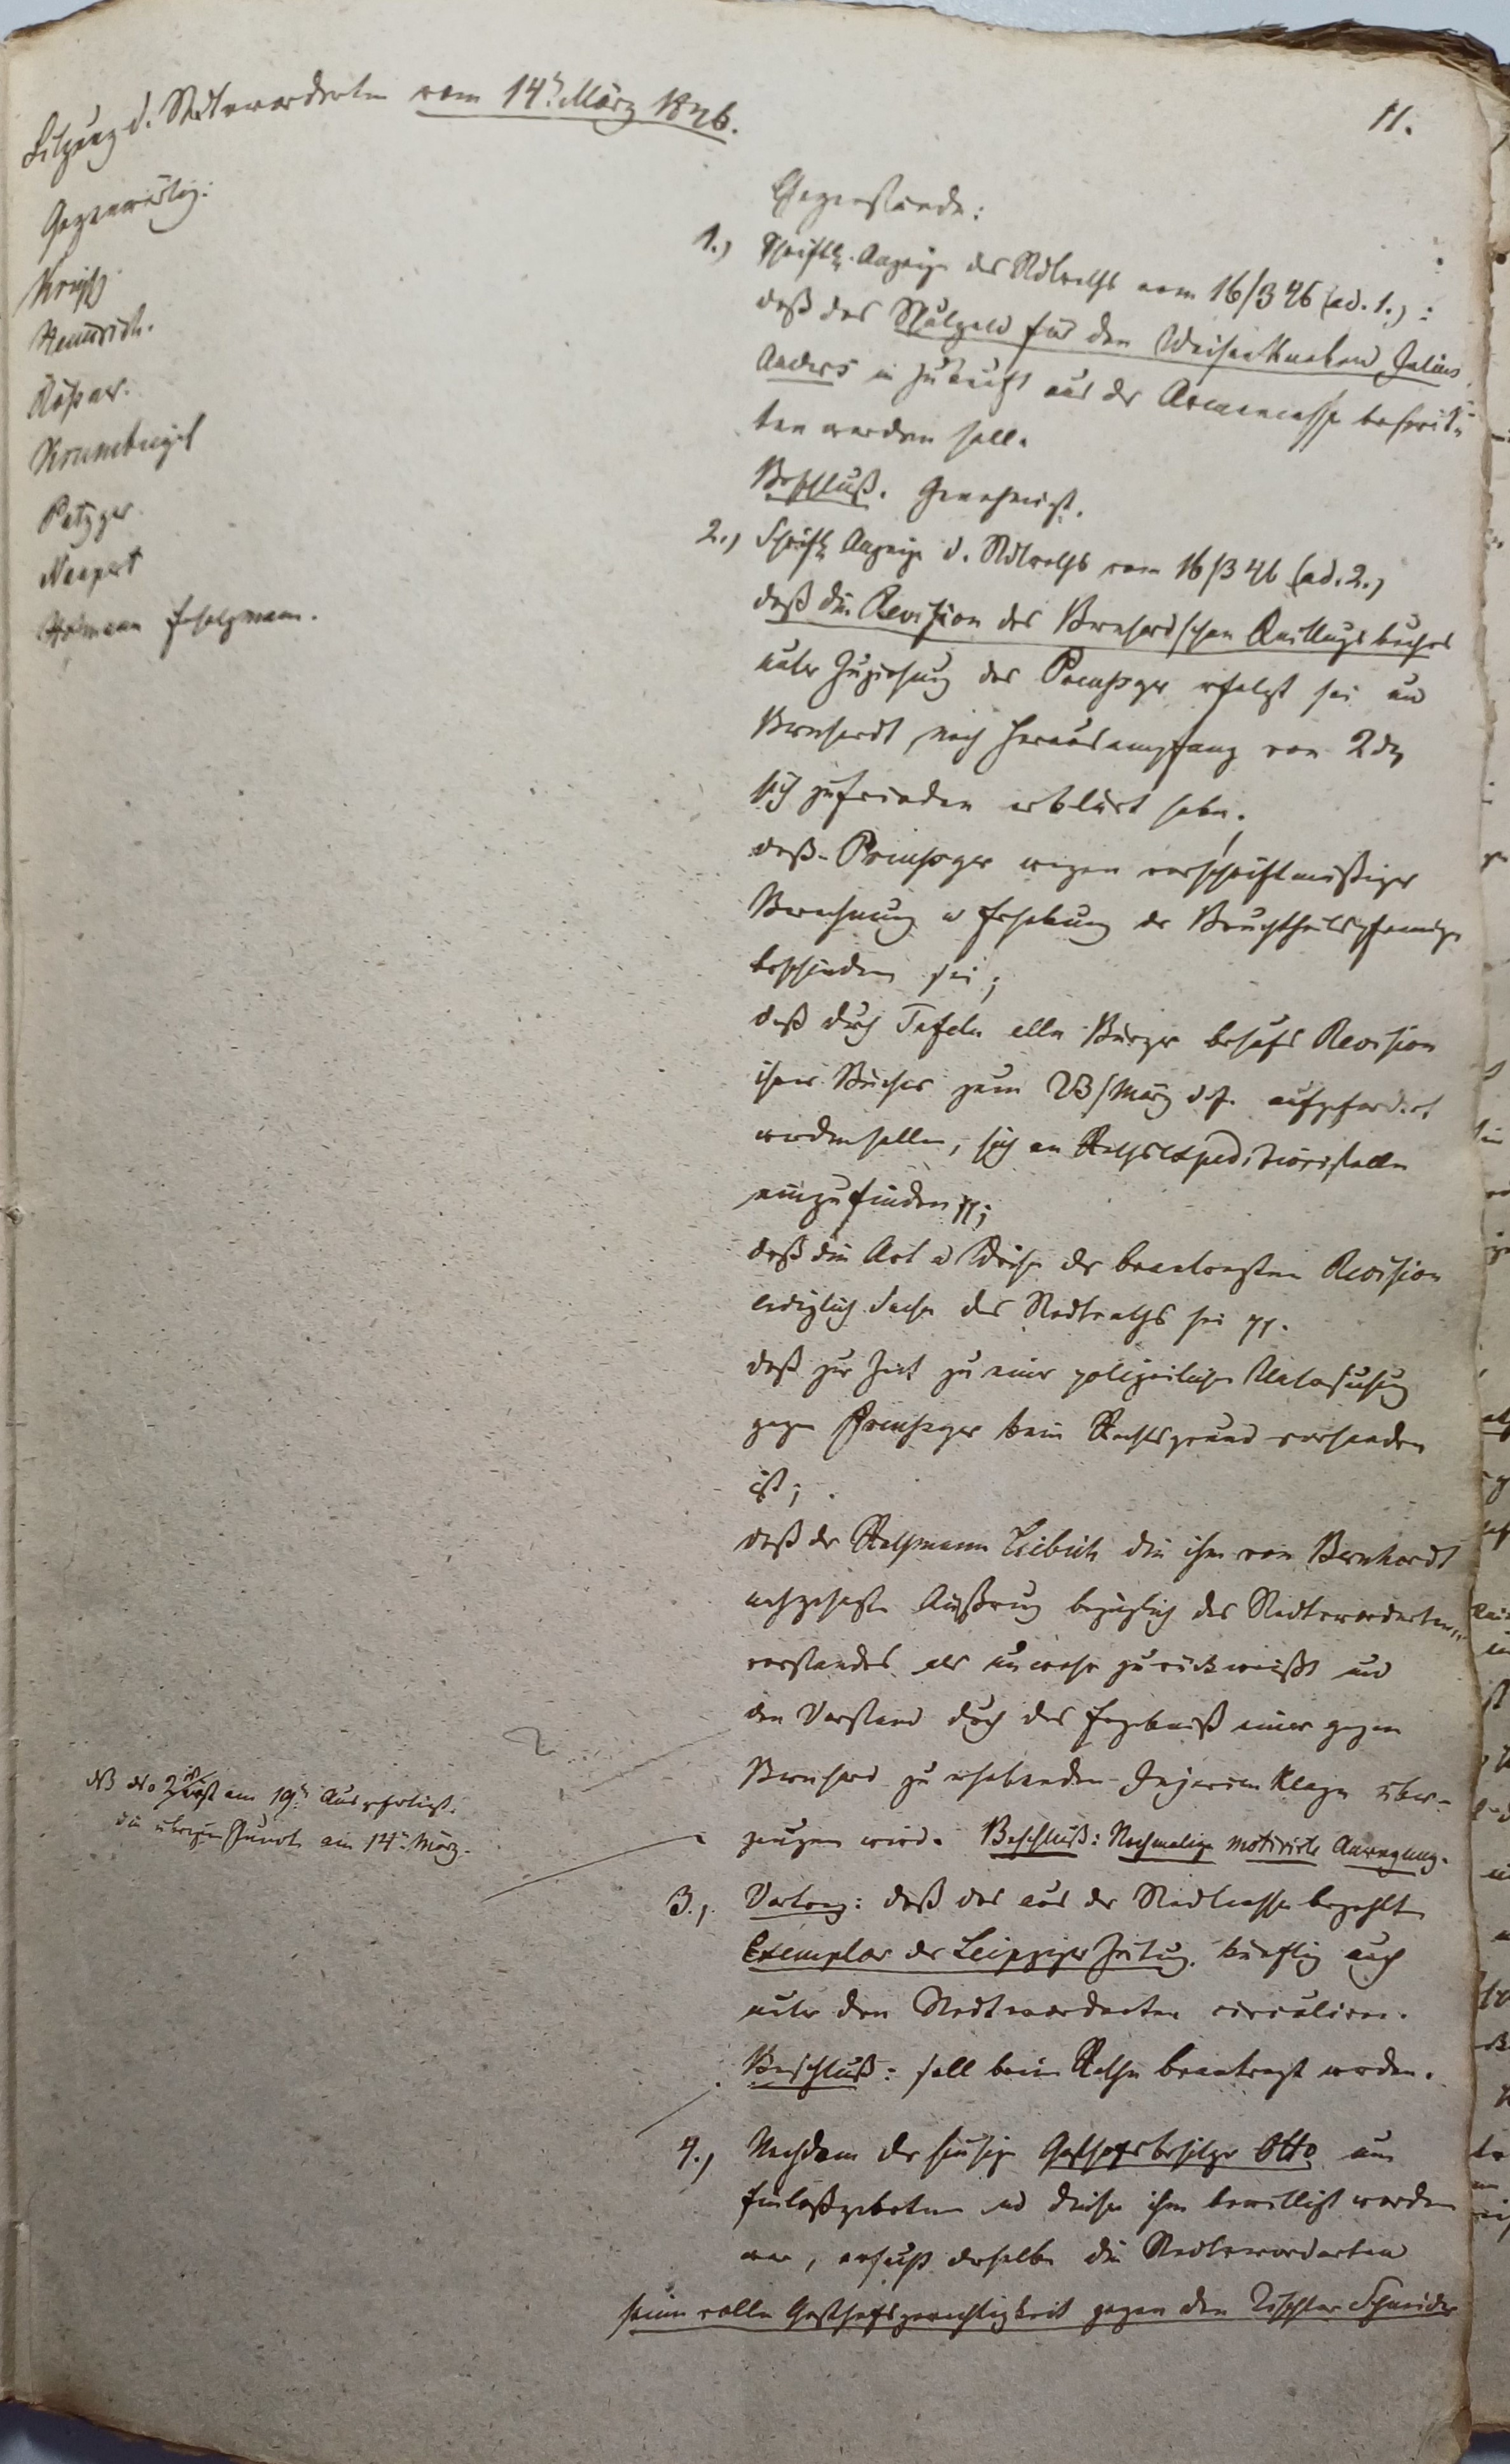 Sitzung d. Stdtverordneten vom 14t. März 1846.
11.
Gegenwärtig:
Heinrich.
Krumbiegel
Petzger
Neupert
Hofmann Ersatzmann.
Gegenstände:
1.) Schriftl. Anzeige des Stdtraths vom 16/3 46 (ad. 1.) :
daß das Schulgeld für den Waisenknaben Julius
Anders in Zukunft aus der Armencasse bestrit-
ten werden solle.
Beschluß. Genehmigt.
2.) Schriftl. Anzeige d. Stdtraths vom 16/3 46 (ad. 2.)
daß die Revision des Bernhardschen Quittungsbuches
unter Zuziehung des erfolgt sei und
Bernhardt, nach Herausempfang von 2
sich zufrieden erklärt habe;
daß wegen vorschriftmäßiger
Berechnung u Erhebung der Bruchtheilspfennige
beschieden sei;
daß durch Tafeln alle Bürger behufs Revision
ihres Buches zum 23/März d. J. aufgefordert
werden sollen, sich an Rathsexpeditionsstelle
einzufinden pp;
daß die Art u Weise der beantragten Revision
lediglich Sache des Stadtraths sei pp.
daß zur Zeit zu einer polizeilichen Untersuchung
gegen kein Rechtsgrund vorhanden
ist;
daß der Rathmann Liebich die ihm von Bernhardt
nachgesagte Äußerung bezüglich des Stadtverordneten-
vorstandes als unwahr zurückweist und
den Vorstand durch das Ergebniß einer gegen
Bernhard zu erhebenden Injurien Klage über-
zeugen wird. Beschluß: Nochmalige motivirte Anregung.
am 19t. Ausgefertigt.
die übrigen Punkte am 14t. März.
3.) Vortrag: daß das aus der Stadtcasse bezahlte
Exemplar der Leipziger Zeitung künftig auch
unter den Stadtverordneten circulire.
Beschluß: soll beim Rathe beantragt werden.
4.) Nachdem der hiesige Gasthofsbesitzer Otto um
Einlaß gebeten und dieser ihm bewilligt worden
war, ersucht derselbe die Stadtverordneten
seine volle Gasthofsgerechtigkeit gegen den Tischler Schneider